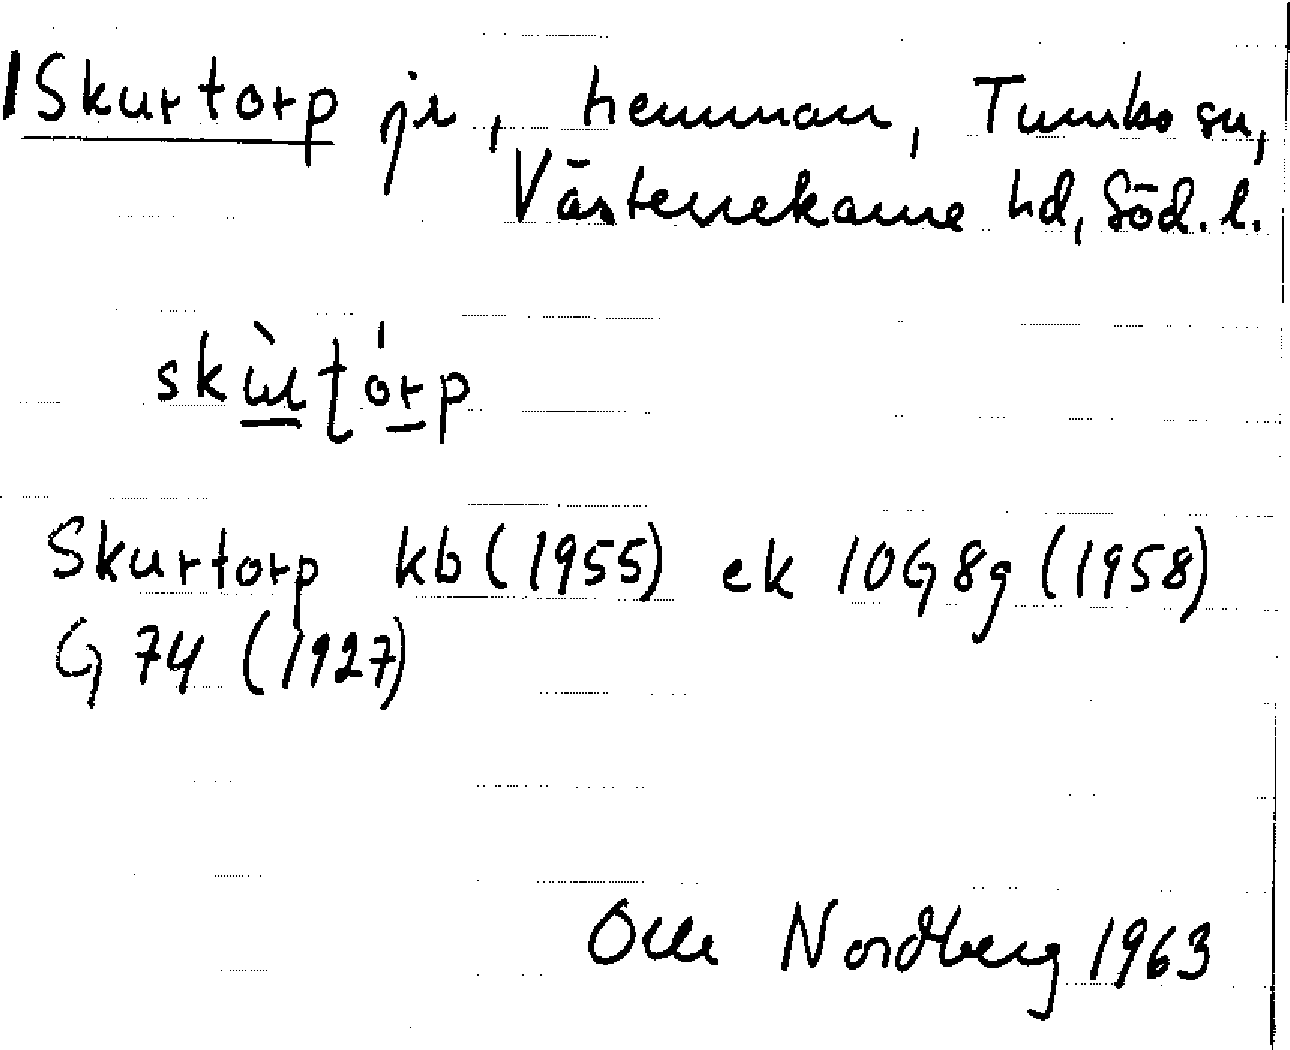 Skurtorp jr, hemman, Tumbo sn,
Västerrekarne hd, Söd. l.
skùrţórp
Skurtorp kb (1955) ek 10G 8g (1958)
G 74 (1927)
Olle Nordberg 1963